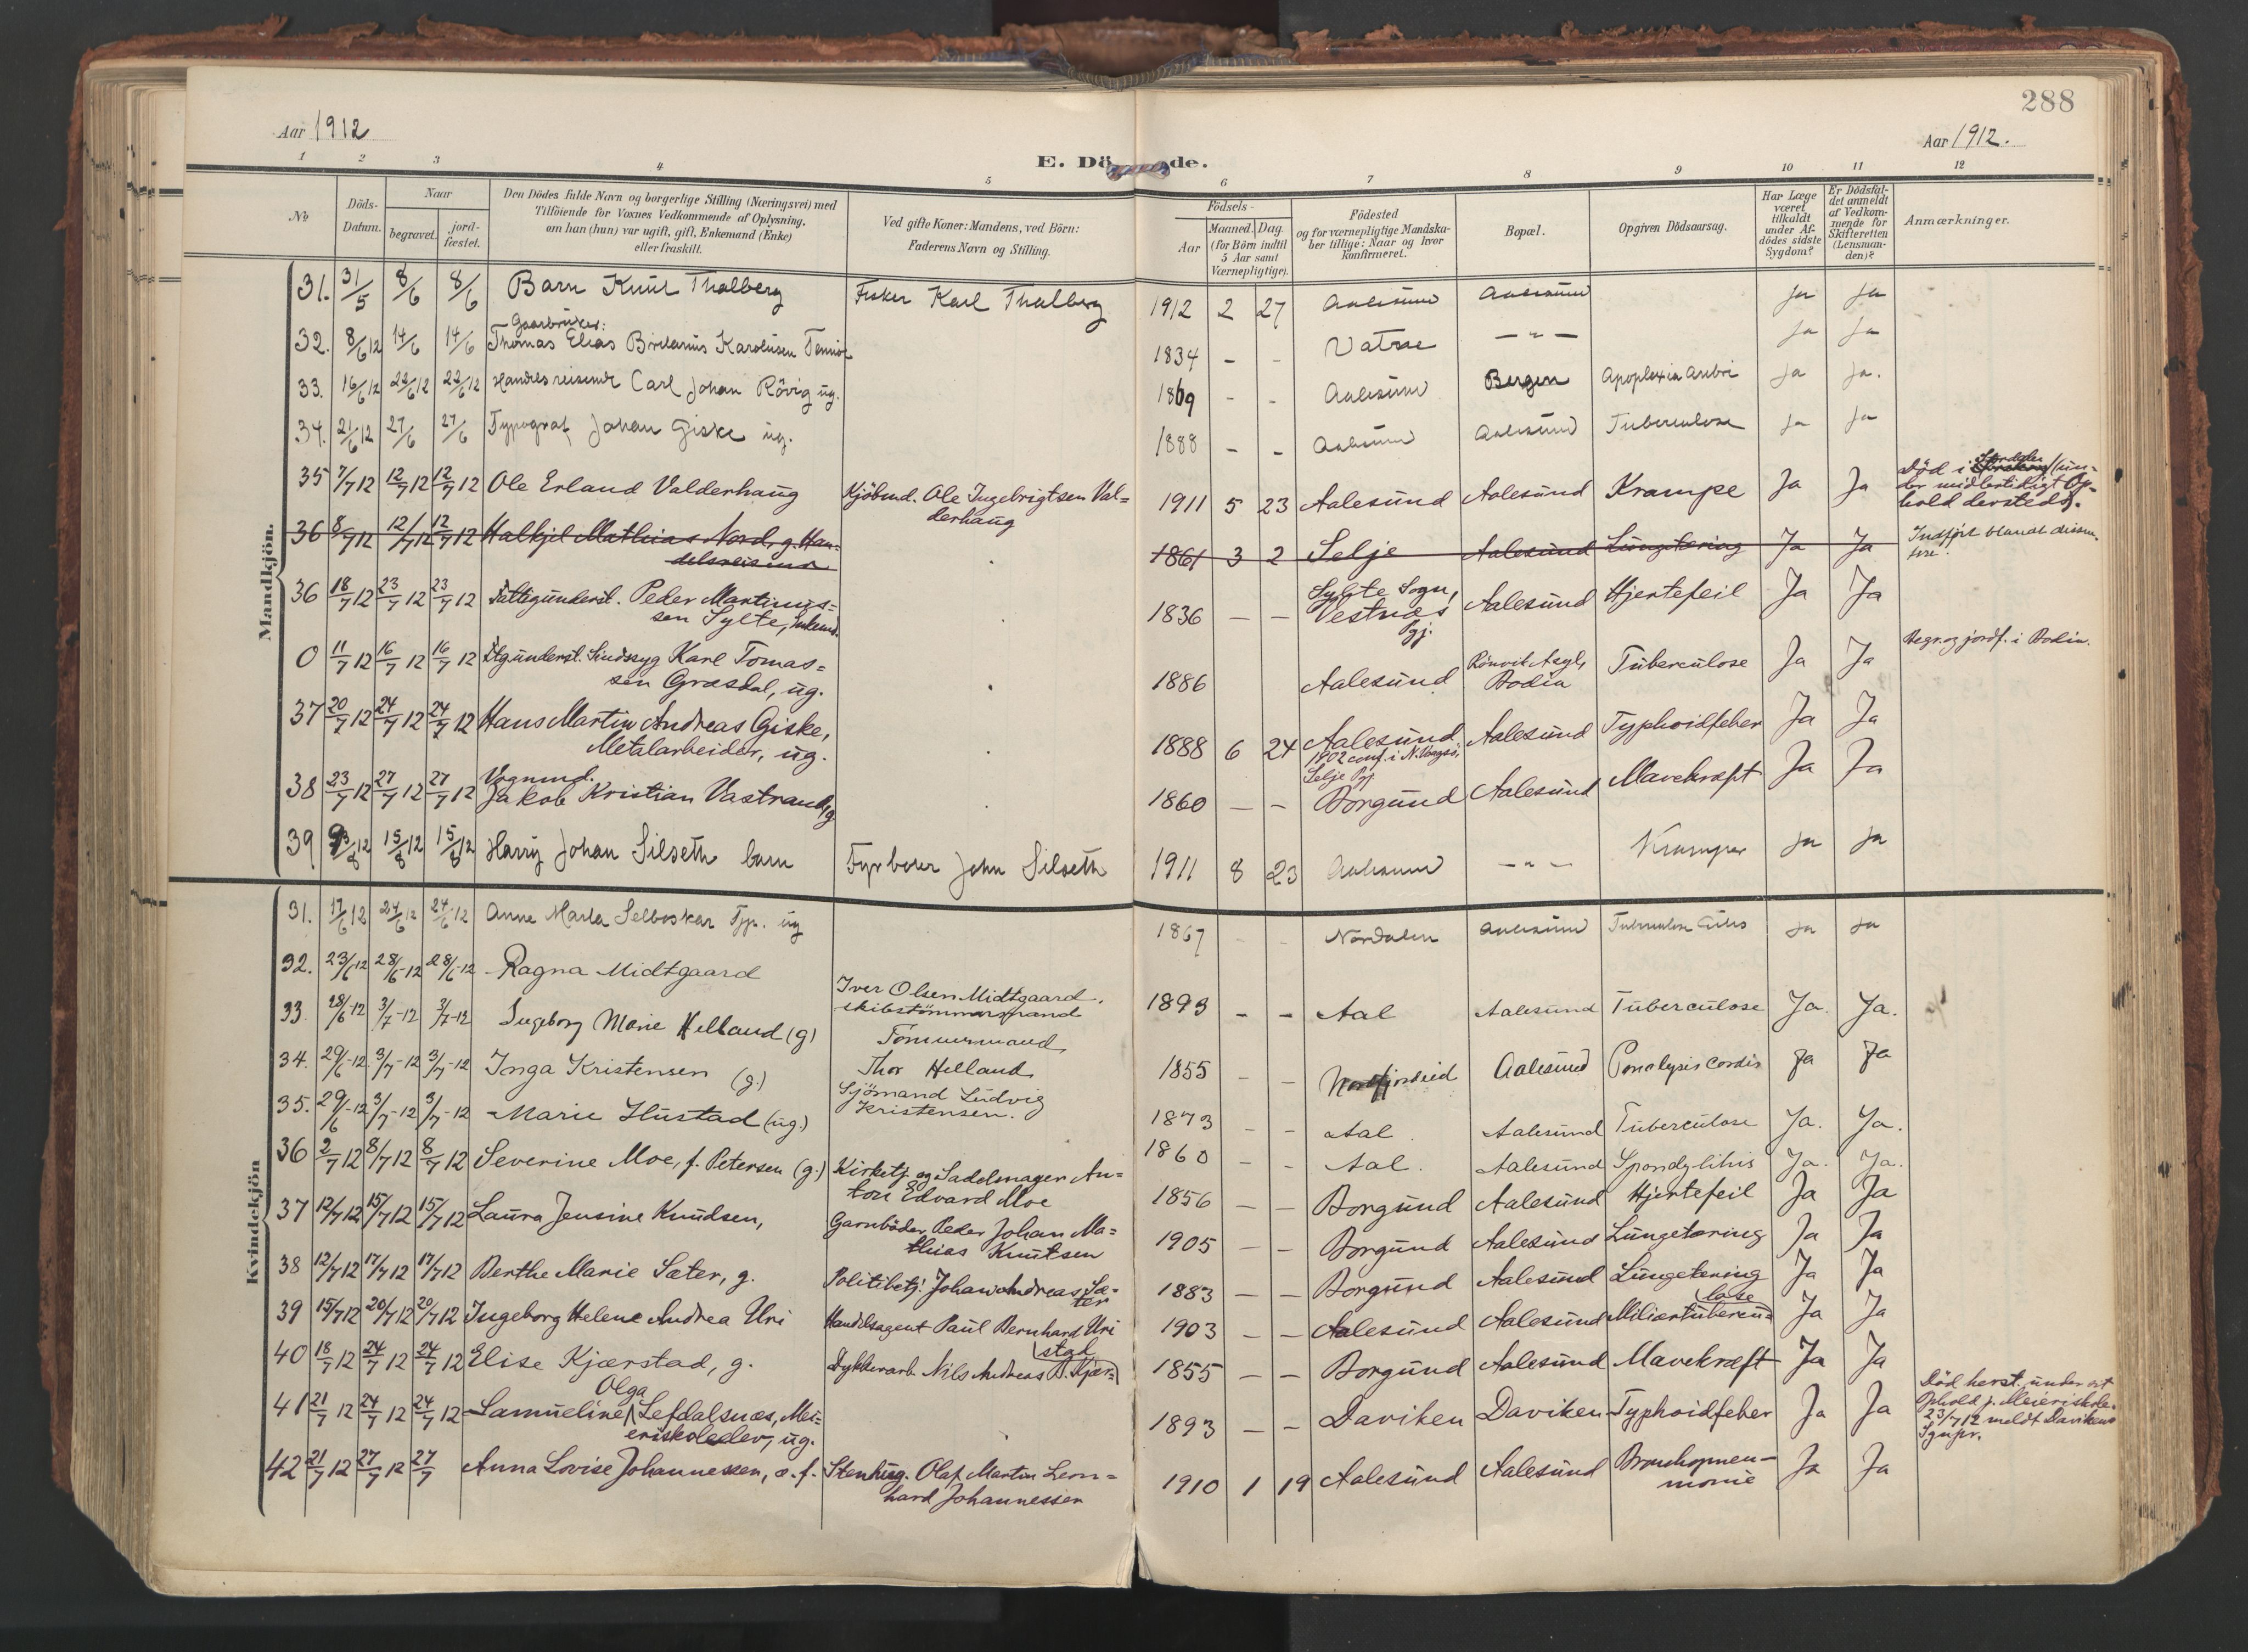 288
Aar 1912
Aar 1912.
E. Dö de.
1 2 3 4 5 6 7 8 9 10 11 12
No
Döds-Datum.
Naar
begravet.
jord-fæstet.
Den Dödes fulde Navn og borgerlige Stilling (Næringsvei) med
Tilföiende for Voxnes Vedkommende af Oplysning,
om han (hun) var ugift, gift, Enkemand (Enke)
eller fraskilt.
Ved gifte Koner: Mandens, ved Börn:
Faderens Navn og Stilling.
Födsels-
Aar
Maaned. Dag.
(for Börn indtil
5 Aar samt
Værnepligtige).
Födested
og for værnepligtige Mandska-
ber tillige: Naar og hvor
konfirmeret.
Bopæl.
Opgiven Dödsaarsag.
Har Læge
været
tilkaldt
under Af-
dödes sidste
Sygdom?
Er Dödsfal-
det anmeldt
af Vedkom-
mende for
Skifteretten
(Lensman-
den)?
Anmærkninger.
Mandkjön.
31. 31/5 8/6 8/6 Barn Knut Thalberg Fisker Karl Thalberg 1912 2 27 Aalesund Aalesund Ja Ja
Gaarbruker:
32. 8/6 12 14/6 14/6 Thomas Elias Karolusen 1834 - - Vatne — " — Ja Ja
33. 16/6 12 22/6 12 22/6 12 Handelsreisende Carl Johan Rövig ug. 1869 - - Aalesund Bergen Apoplexia Ja Ja.
34. 21/6 12 27/6 27/6 Typograf Johan Giske ug. 1888 - - Aalesund Aalesund Tuberculose Ja Ja
35 7/7 12 12/7 12 12/7 12 Ole Erland Valderhaug Kjöbmd. Ole Ingebrigtsen Val=
derhaug 1911 5 23 Aalesund Aalesund Krampe Ja Ja Död i (un-
der midlertidigt Op-
hold dersteds).
36 8/7 12 12/7 12 12/7 12 Halkjel Mathias Nord, g. Han-
delsreisende 1861 3 2 Selje Aalesund Lungetæring Ja Ja Indfört blandt dissen-
tere.
36 18/7 12 23/7 12 23/7 12 Fattigunderst. Peder Martinus=
sen Sylte, Enkemd. 1836 — — Sylte Sogn,
Vestnæs
Pgj. Aalesund Hjertefeil Ja Ja
0 11/7 12 16/7 12 16/7 12 Ftgunderst. Sindssyg Karl Tomas=
sen Græsdal, ug. 1886 Aalesund Rönvik Asyl,
Bodin Tuberculose Ja Ja Begr. og jordf. i Bodin.
37 20/7 12 24/7 12 24/7 12 Hans Martin Andreas Giske,
Metalarbeider, ug. 1888 6 24 Aalesund
1902 conf. i N. Vaagsö,
Selje Pgj Aalesund Typhoidfeber Ja Ja
Vognmd.
38 23/7 12 27/7 12 27/7 12 Jakob Kristian Vastrand, g 1860 — — Borgund Aalesund Mavekræft Ja Ja
39 /8 12 15/8 12 15/8 12 Harry Johan Silseth barn Fyrböter John Silseth 1911 8 23 Aalesund — " — Kramper Ja Ja
Kvindekjön
31. 17/6 12 24/6 12 24/6 12 Anne Marta Selboskar Tjp. ug 1867 - - Nordalen Aalesund Ja Ja
32. 23/6 12 28/6-12 28/6-12 Ragna Midtgaard Iver Olsen Midtgaard.
skibstömmermand 1893 - - Aal Aalesund Tuberculose Ja. Ja.
33. 28/6-12 3/7-12 3/7-12 Ingeborg Marie Helland (g) Tömmermand,
Thor Helland 1855 - - Nordfjordeid Aalesund Paralysis cordis Ja Ja
34. 29/6-12 3/7-12 3/7-12 Inga Kristensen (g.) Sjömand Ludvig
Kristensen. 1873 - - Aal. Aalesund Tuberculose Ja. Ja.
35. 29/6-12 3/7-12 3/7-12 Marie Hustad (ug.) 1860 - - Aal. Aalesund Spondylitis Ja. Ja.
36 2/7 12 8/7 12 8/7 12 Severine Moe, f. Petersen (g.) Kirketj. og Sadelmager An=
ton Edvard Moe 1856 — — Borgund Aalesund Hjertefeil Ja Ja
37 12/7 12 15/7 12 15/7 12 Laura Jensine Knudsen, Garnböder Peder Johan Ma=
thias Knutsen 1905 — — Borgund Aalesund Lungetæring Ja Ja
38 12/7 12 17/7 12 17/7 12 Berthe Marie Sæter, g. Politibetj. Johan Andreas Sæ-
ter 1883 — — Borgund Aalesund Lungetæring Ja Ja
39 15/7 12 20/7 12 20/7 12 Ingeborg Helene Andrea Uri Handelsagent Paul Bernhard Uri 1903 — — Aalesund Aalesund Miliærtubercu=
lose Ja Ja
40 18/7 12 24/7 12 24/7 12 Elise Kjærstad, g. Dykkerarb. Nils Andreas B. Kjær=
stad 1855 — — Borgund Aalesund Mavekræft Ja Ja
41 21/7 12 24/7 12 24/7 12 Samueline Olga Lefdalsnæs, Mei=
eriskoleelev, ug. 1893 — — Daviken Daviken Typhoidfeber Ja Ja Död herst. under et
Ophold p. Meieriskole.
23/7 12 meldt Davikens
Sgnpr.
42 21/7 12 27/7 12 27/7 Anna Lovise Johannessen, æ. f. Stenhug. Olaf Martin Leon=
hard Johannessen 1910 1 19 Aalesund Aalesund Bronchopneu=
monie Ja Ja